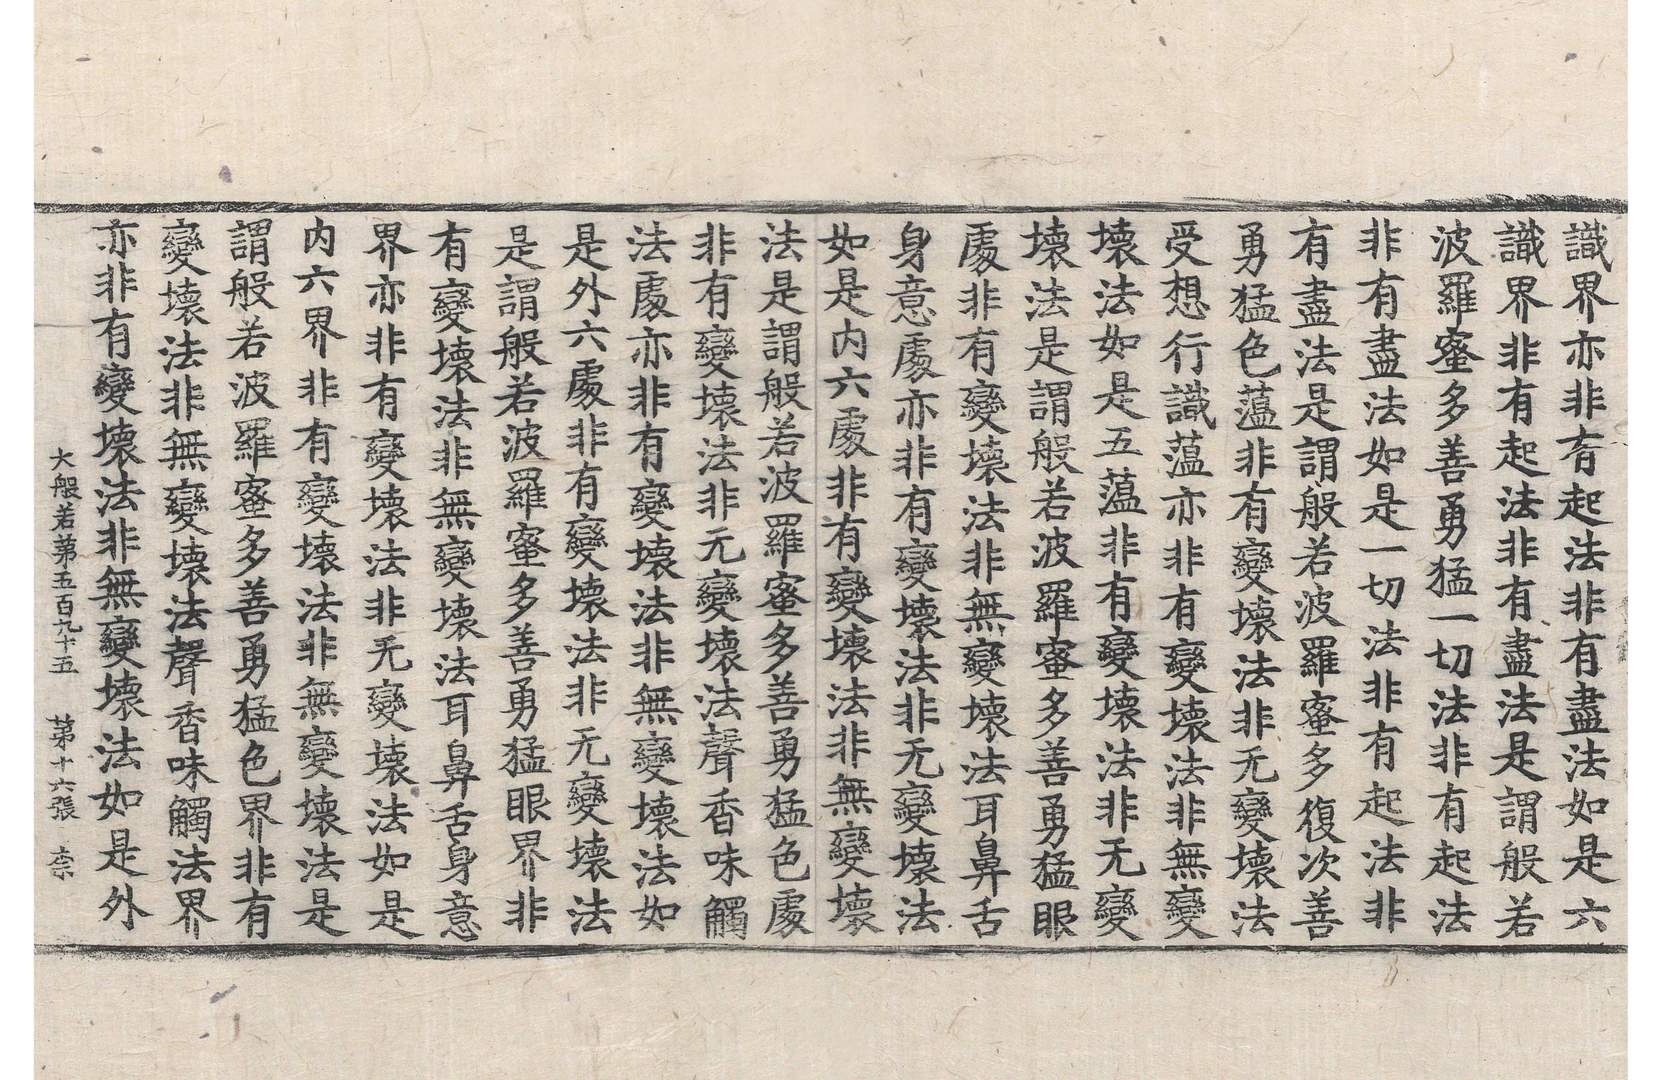 識界亦非有起法非有盡法如是六
識界非有起法非有盡法是謂般若
波羅蜜多善勇猛一切法非有起法
非有盡法如是一切法非有起法非
有盡法是謂般若波羅蜜多復次善
勇猛色薀非有變壞法非无變壞法
受想行識薀亦非有變壞法非無變
壞法如是五薀非有變壞法非无變
壞法是謂般若波羅蜜多善勇猛眼
處非有變壞法非無變壞法耳鼻舌
身意處亦非有變壞法非无變壞法
如是内六處非有變壞法非無變壞
法是謂般若波羅蜜多善勇猛色處
非有變壞法非无變壞法聲香味觸
法處亦非有變壞法非無變壞法如
是外六處非有變壞法非无變壞法
是謂般若波羅蜜多善勇猛眼界非
有變壞法非無變壞法耳鼻舌身意
界亦非有變壞法非无變壞法如是
内六界非有變壞法非無變壞法是
謂般若波羅蜜多善勇猛色界非有
變壞法非無變壞法聲香味觸法界
亦非有變壞法非無變壞法如是外
大般若第五百九十五 第十六張 柰